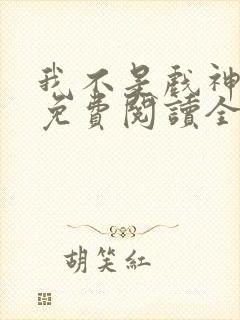 我不是戲神
免費閱讀全
胡笑紅